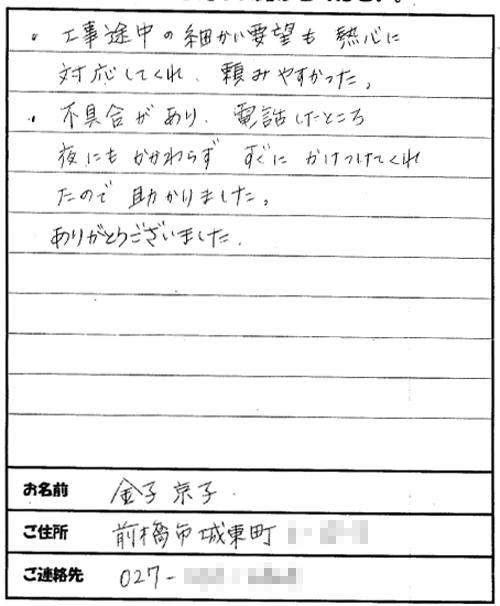 ・工事途中の細かい要望も 熱心に
対応してくれ、頼みやすかった。
・不具合があり、電話したところ
夜にもかかわらず すぐに かけつけてくれ
たので 助かりました。
ありがとうございました。
お名前 金子 京子
ご住所 前橋市城東町
ご連絡先 027-